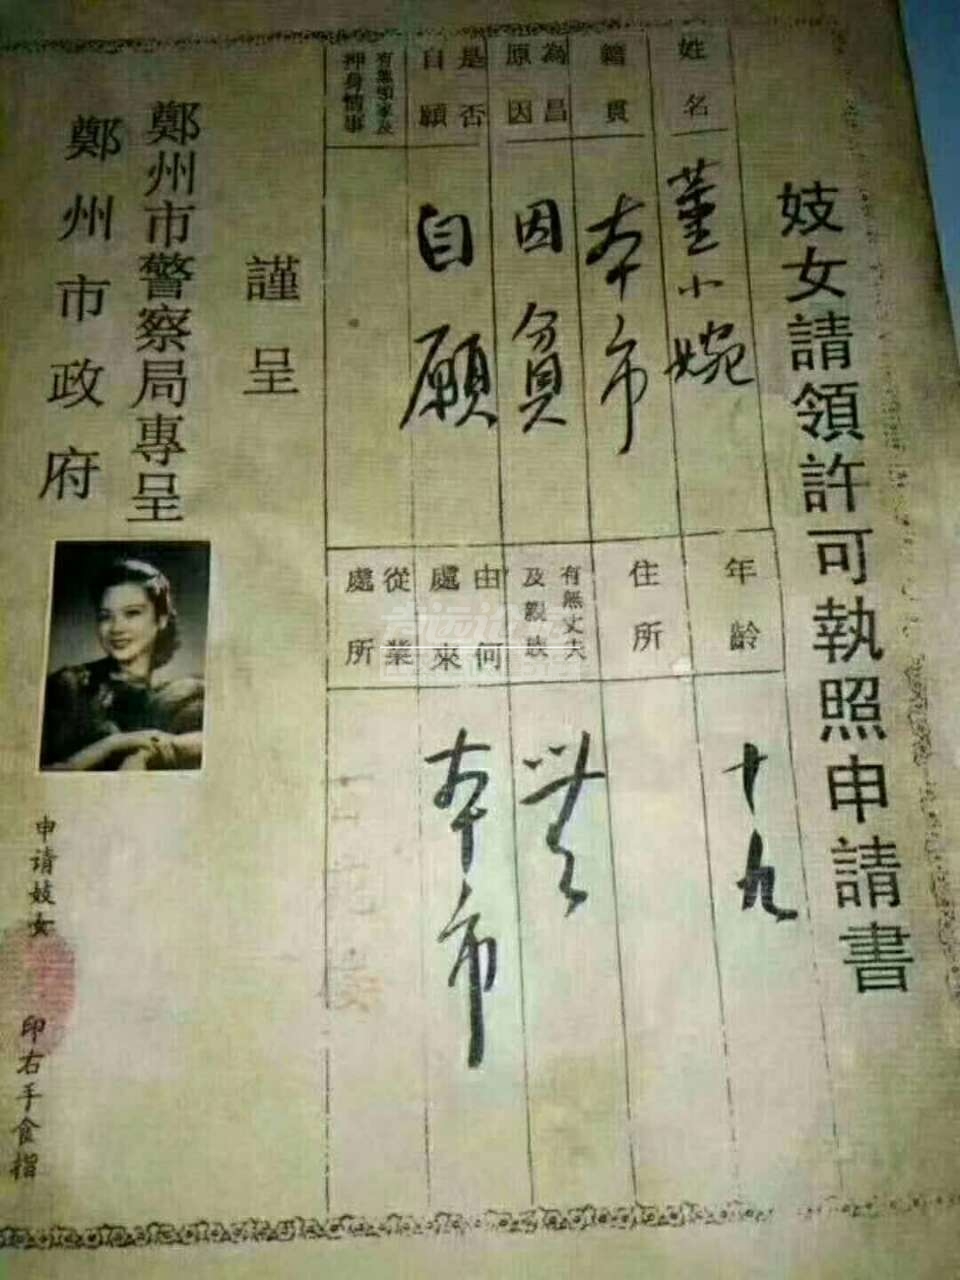 妓女請領許可執照申請書
姓名
董小婉
年齡
十九
籍貫
本市
住所
為昌原因
因貧
有無丈夫及親族
無
是否自願
自願
由何處來
本市
有無領家及押身情事
從業處所
謹呈
鄭州市警察局專呈
鄭州市政府
申请妓女
印右手食指